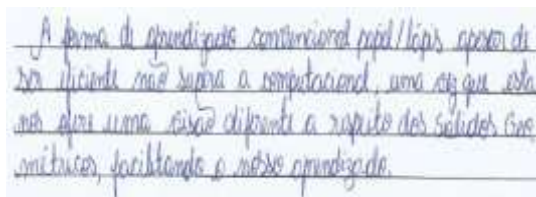 A forma de aprendizado convencional papel/lápis apesar de
ser eficiente não supera a computacional, uma vez que esta
nos ofere uma visão diferente a respeito dos Sólidos Geo
métricos, facilitando o nosso aprendizado.